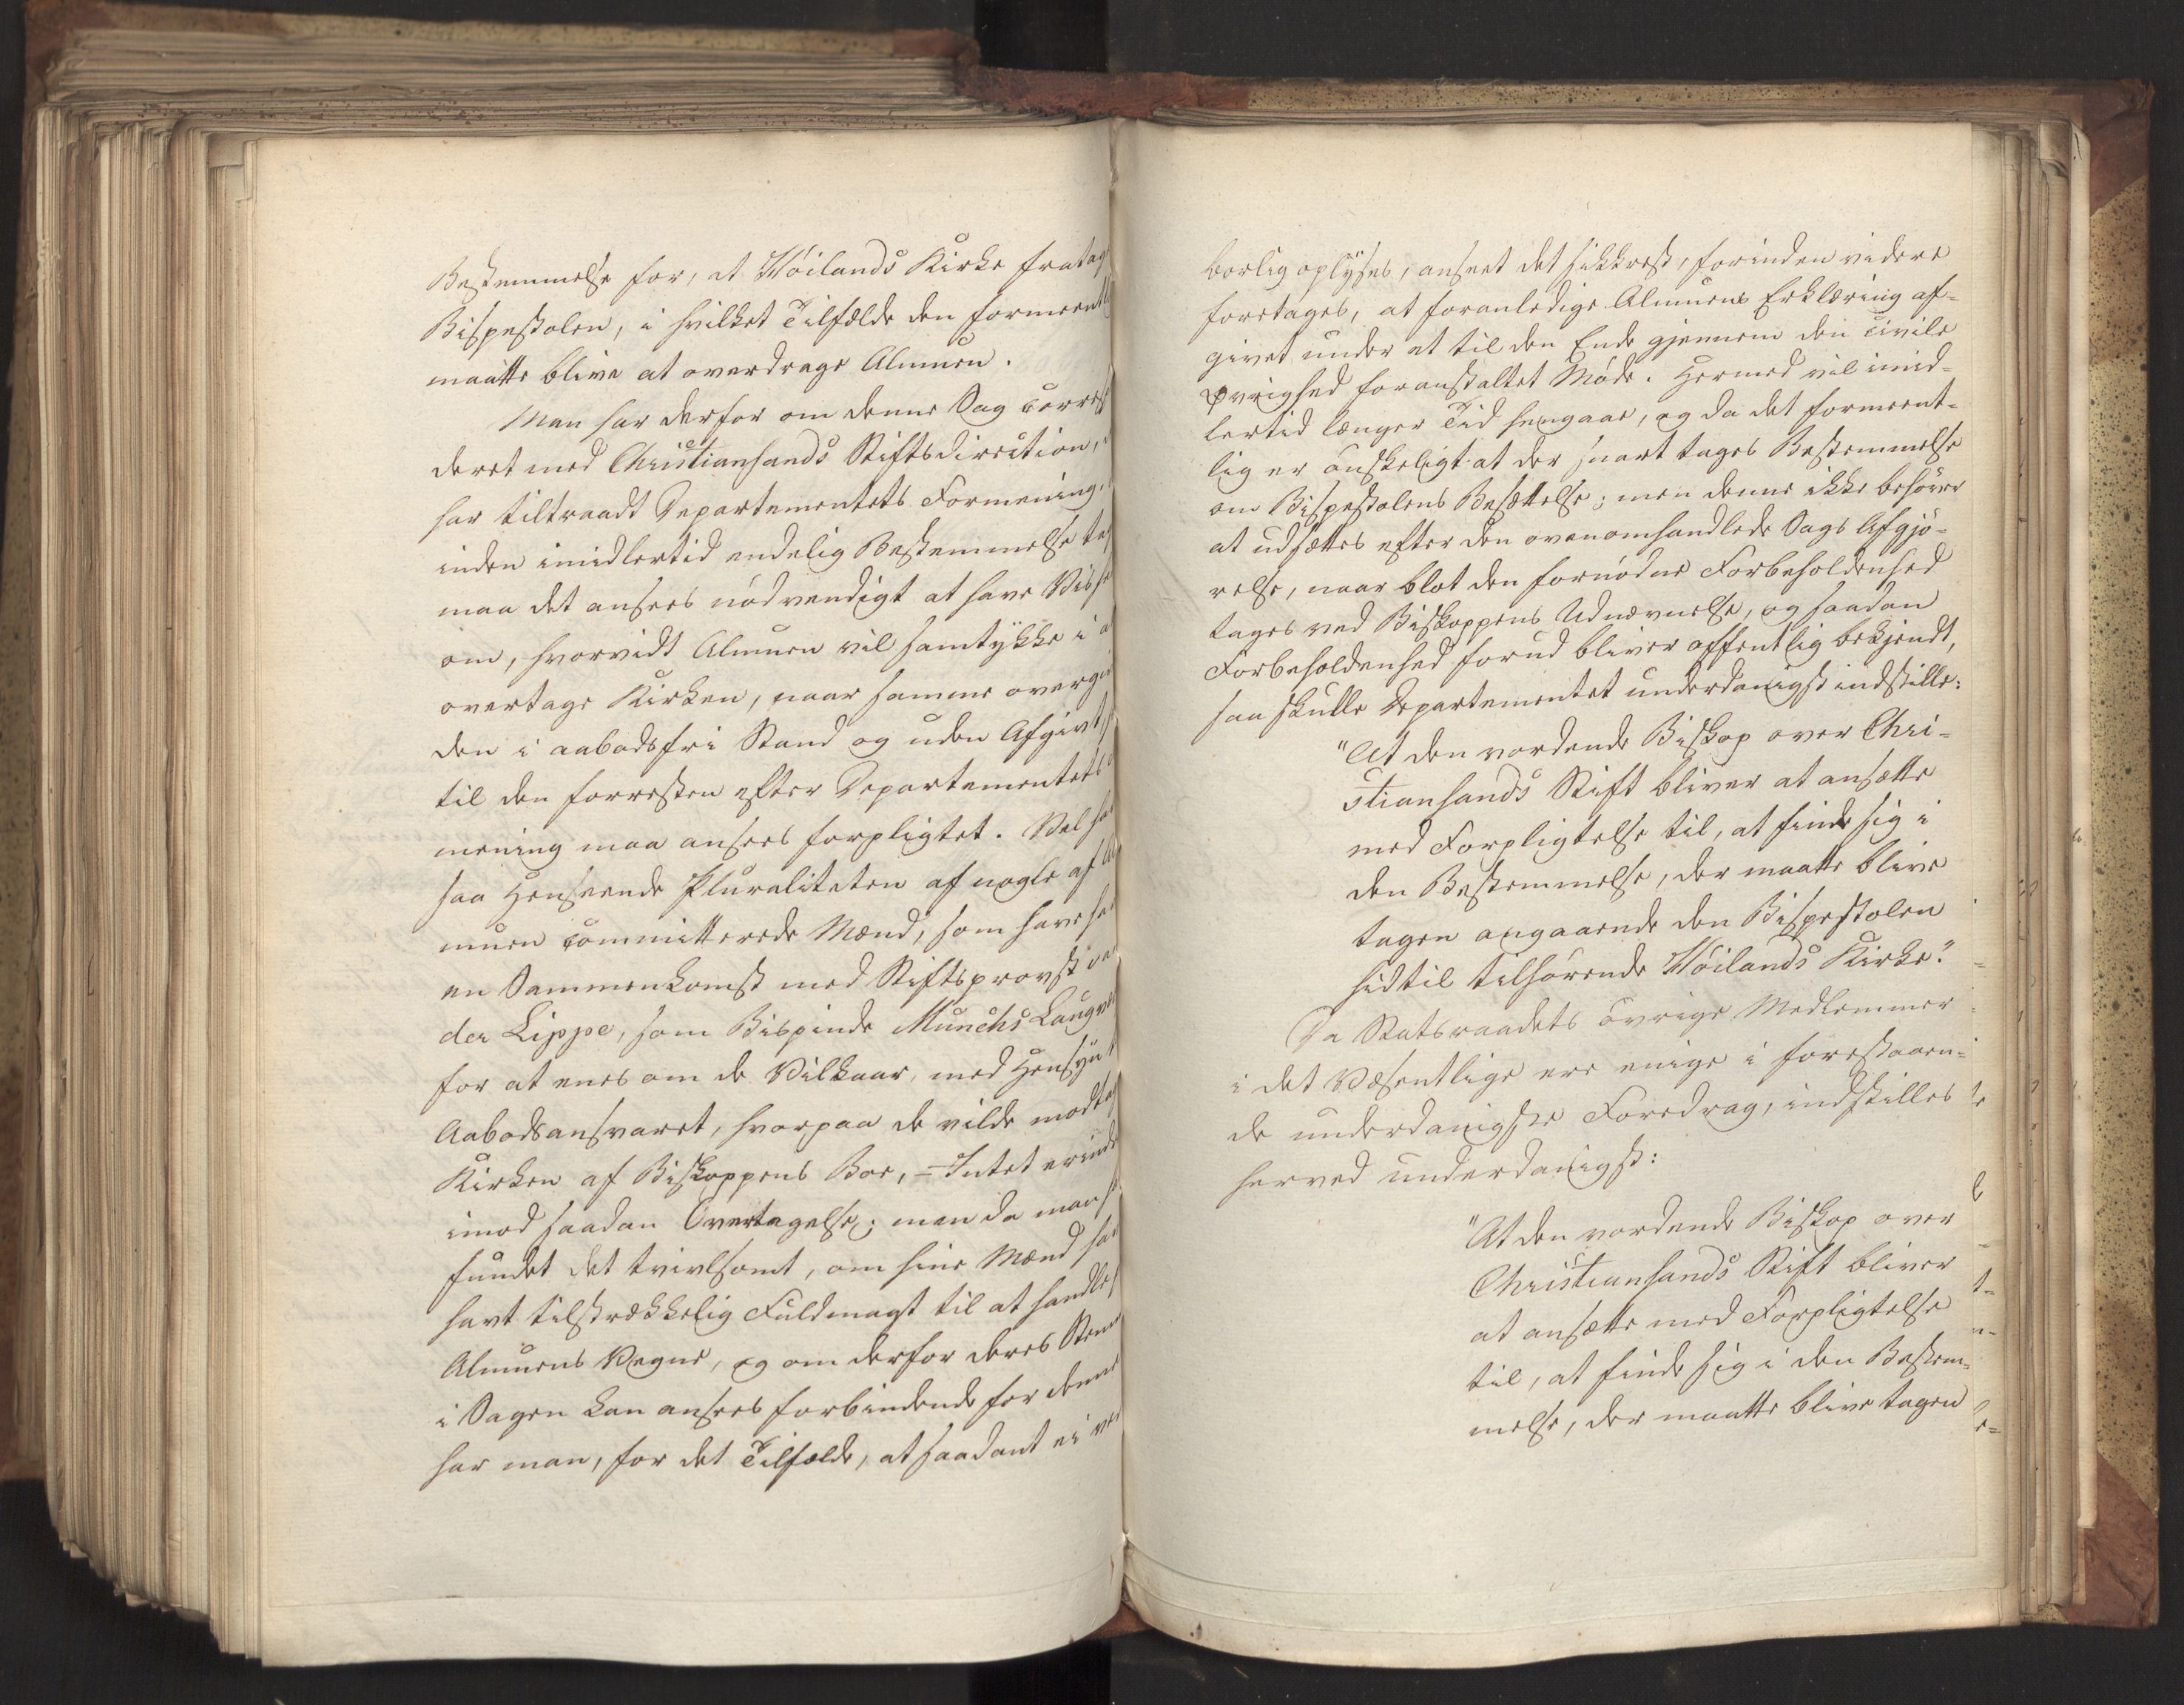 Bestemmelse for, at Höilands Kirke fratag
Bispestolen, i hvilket Tilfælde den formeentl
maatte blive at overdrage Almuen.
Man har derfor om denne Sag corres
deret med Christiansands Stiftsdirection,
har tiltraadt Departementets Formening.
inden imidlertid endelig Bestemmelse ta
maa det ansees nödvendigt at have Vis
om, hvorvidt Almuen vil samtykke i a
overtage Kirken, naar samme overgi
den i aabodsfri Stand og uden Afgivt,
til den forresten efter Departementets
mening maa ansees forpligtet. Vel ha
saa Henseende Pluraliteten af nogle af Al
muen committerede Mænd, som have ha
en Sammenkomst med Stiftsprovst va
der Lippe, som Bispinde Munchs Laugve
for at enes om de Vilkaar, med Hensyn t
Aabodsansvaret, hvorpaa de vilde modta
Kirken af Biskoppens Boe, – Intet erind
imod saadan Overtagelse; men da man h
fundet det tvivlsomt, om hine Mænd ha
havt tilstrækkelig Fuldmagt til at handle
Almuens Vegne, og om derfor deres Stem
i Sagen kan ansees forbindende for denne
har man, for det Tilfælde, at saadant ei ve
borlig oplyses, anseet det sikkrest, forinden videre
foretages, at foranledige Almuens Erklæring af-
givet under et til den Ende gjennem den civile
Øvrighed foranstaltet Möde. Hermed vil imid-
lertid længer Tid hengaae, og da det formeent-
lig er önskeligt at der snart tages Bestemmelse
om Bispestolens Besættelse; men denne ikke behöver
at udsættes efter den ovenomhandlede Sags Afgjö-
relse, naar blot den fornödne Forbeholdenhed
tages ved Biskoppens Udnævnelse, og saadan
Forbeholdenhed forud bliver offentlig bekjendt,
saa skulle Departementet underdanigst indstille:
"At den vordende Biskop over Chri-
stiansands Stift bliver at ansætte
med Forpligtelse til, at finde sig i
den Bestemmelse, der maatte blive
tagen angaaende den Bispestolen
hidtil tilhörende Höilands Kirke."
Da Statsraadets övrige Medlemmer
i det Væsentlige ere enige i forestaaen-
de underdanigste Foredrag, indstilles
herved underdanigst:
"At den vordende Biskop over
Christiansands Stift bliver
at ansætte med Forpligtelse
til, at finde sig i den Bestem-
melse, der maatte blive tagen